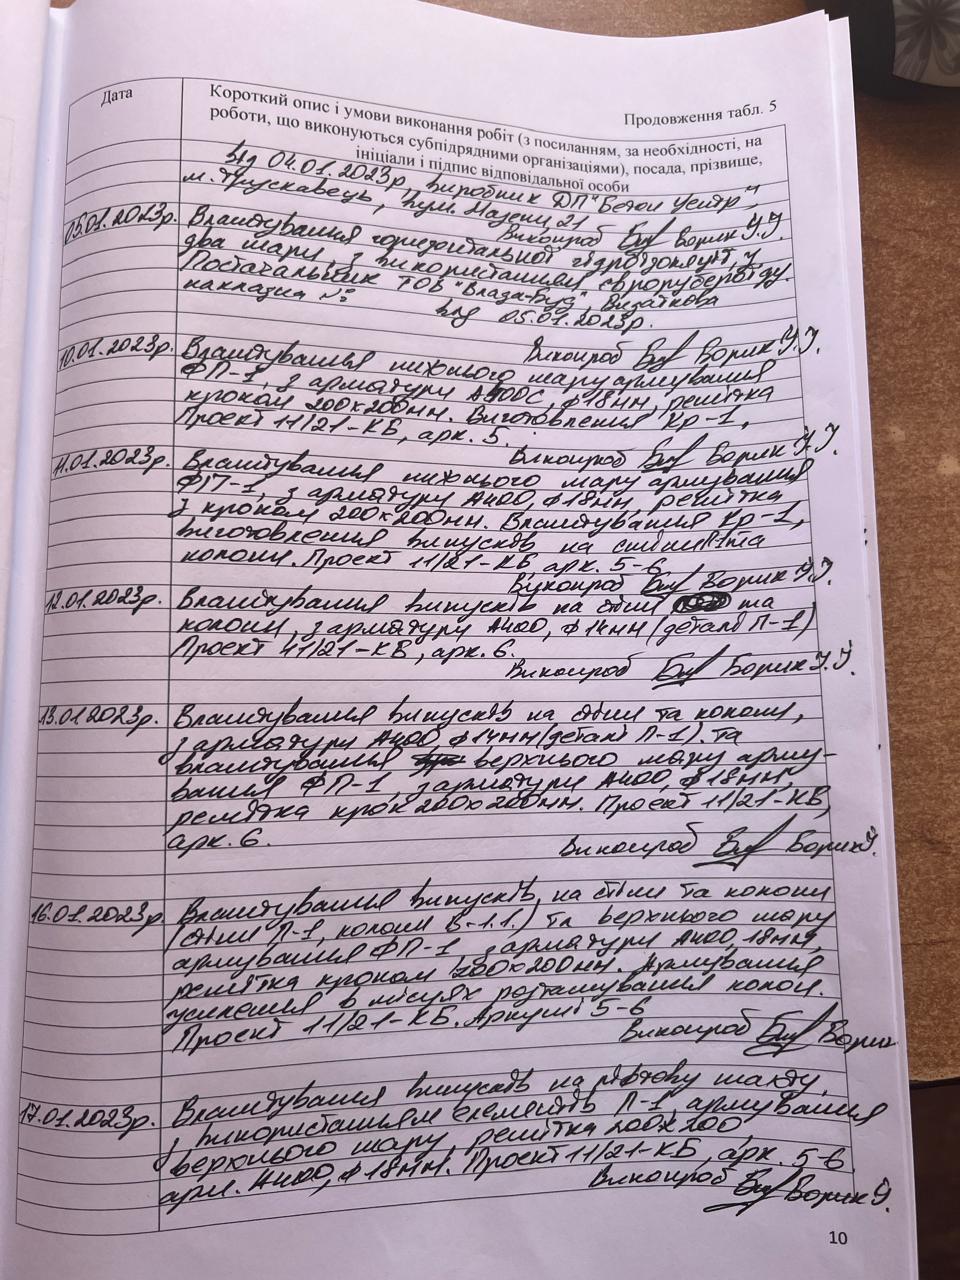 Продовження табл. 5
Дата
Короткий опис і умови виконання робіт (з посиланням, за необхідності, на
роботи, що виконуються субпідрядними організаціями), посада, прізвище,
ініціали і підпис відповідальної особи
від 04.01.2023р, виробник ДП "Бетон Центр",
м. Трускавець, вул. Мазепи, 21
Виконроб Борик У.І.
05.01.2023р. Влаштування горизонтальної гідроізоляції, у
два шари, з використанням євроруберойду.
Постачальник ТОВ "Влада-Буд", Видаткова
накладна №
від 05.01.2023р.
Виконроб Борик У.І.
10.01.2023р. Влаштування нижнього шару армування
ФП-1, з арматури А400С, ф18мм, решітка
кроком 200х200мм. Виготовлення Кр-1,
Проект 11/21-КБ, арк. 5.
Виконроб Борик У.І.
11.01.2023р. Влаштування нижнього шару армування
ФП-1, з арматури А400, ф18мм, решітка
з кроком 200х200мм. Влаштування Кр-1,
виготовлення випусків на стіни та
колони. Проект 11/21-КБ, арк. 5-6
Виконроб Борик У.І.
12.01.2023р. Влаштування випусків на стіни та
колони, з арматури А400, ф14мм (деталі П-1)
Проект 11/21-КБ, арк. 6.
Виконроб Борик У.І.
13.01.2023р. Влаштування випусків на стіни та колони,
з арматури А400, ф14мм (деталі П-1). та
влаштування верхнього шару арму-
вання ФП-1, з арматури А400, ф18мм.
решітка крок 200х200мм. Проект 11/21-КБ,
арк. 6.
Виконроб Борик У.
16.01.2023р. Влаштування випусків, на стіни та колони
(стіни П-1, колони В-1.1.) та верхнього шару
армування ФП-1 з арматури А400, 18мм,
решітка кроком 200х200мм. Армування
усилення в місцях розташування колон.
Проект 11/21-КБ. Аркуші 5-6
Виконроб Борик
17.01.2023р. Влаштування випусків на ліфтову шахту,
з використанням елементів П-1, армування
верхнього шару, решітка 200х200,
арм. А400, ф18мм. Проект 11/21-КБ, арк. 5-6
Виконроб Борик У.
10